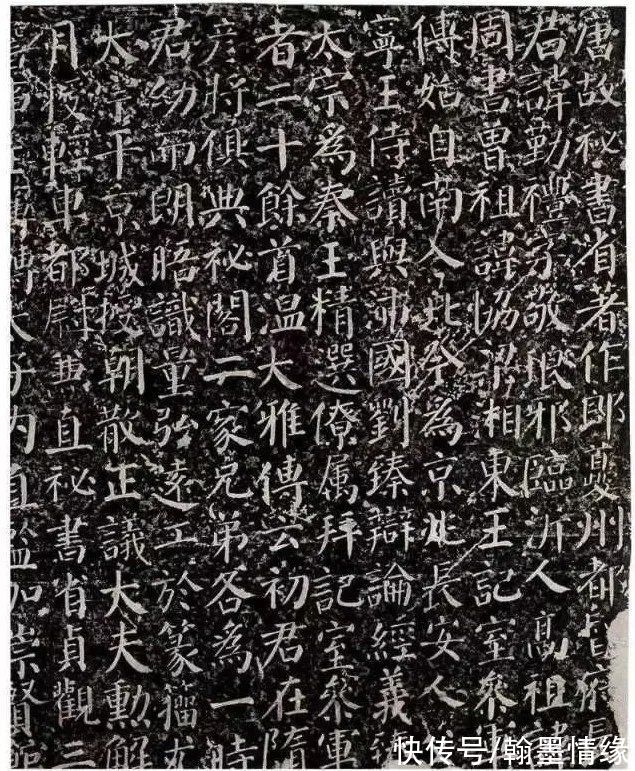 唐故秘書省著作郎夔州都督府長
君諱勤禮字敬琅邪臨沂人高祖諱
周書曾祖諱協梁湘東王記室參
傳始自南入北今為京兆長安人
寧王侍讀與沛國劉臻辯論經義臻
太宗為秦王精選僚属拜記室參軍
者二十餘首温大雅傳云初君在隋
彦將俱典祕閣二家兄弟各為一時
君幼而朗晤識量弘遠工於篆籀尤
太宗平京城授朝散正議大夫勳解
月授輕車都尉兼直祕書省貞觀三
詹事主簿轉太子内直監加崇賢館
快传号/翰墨情缘